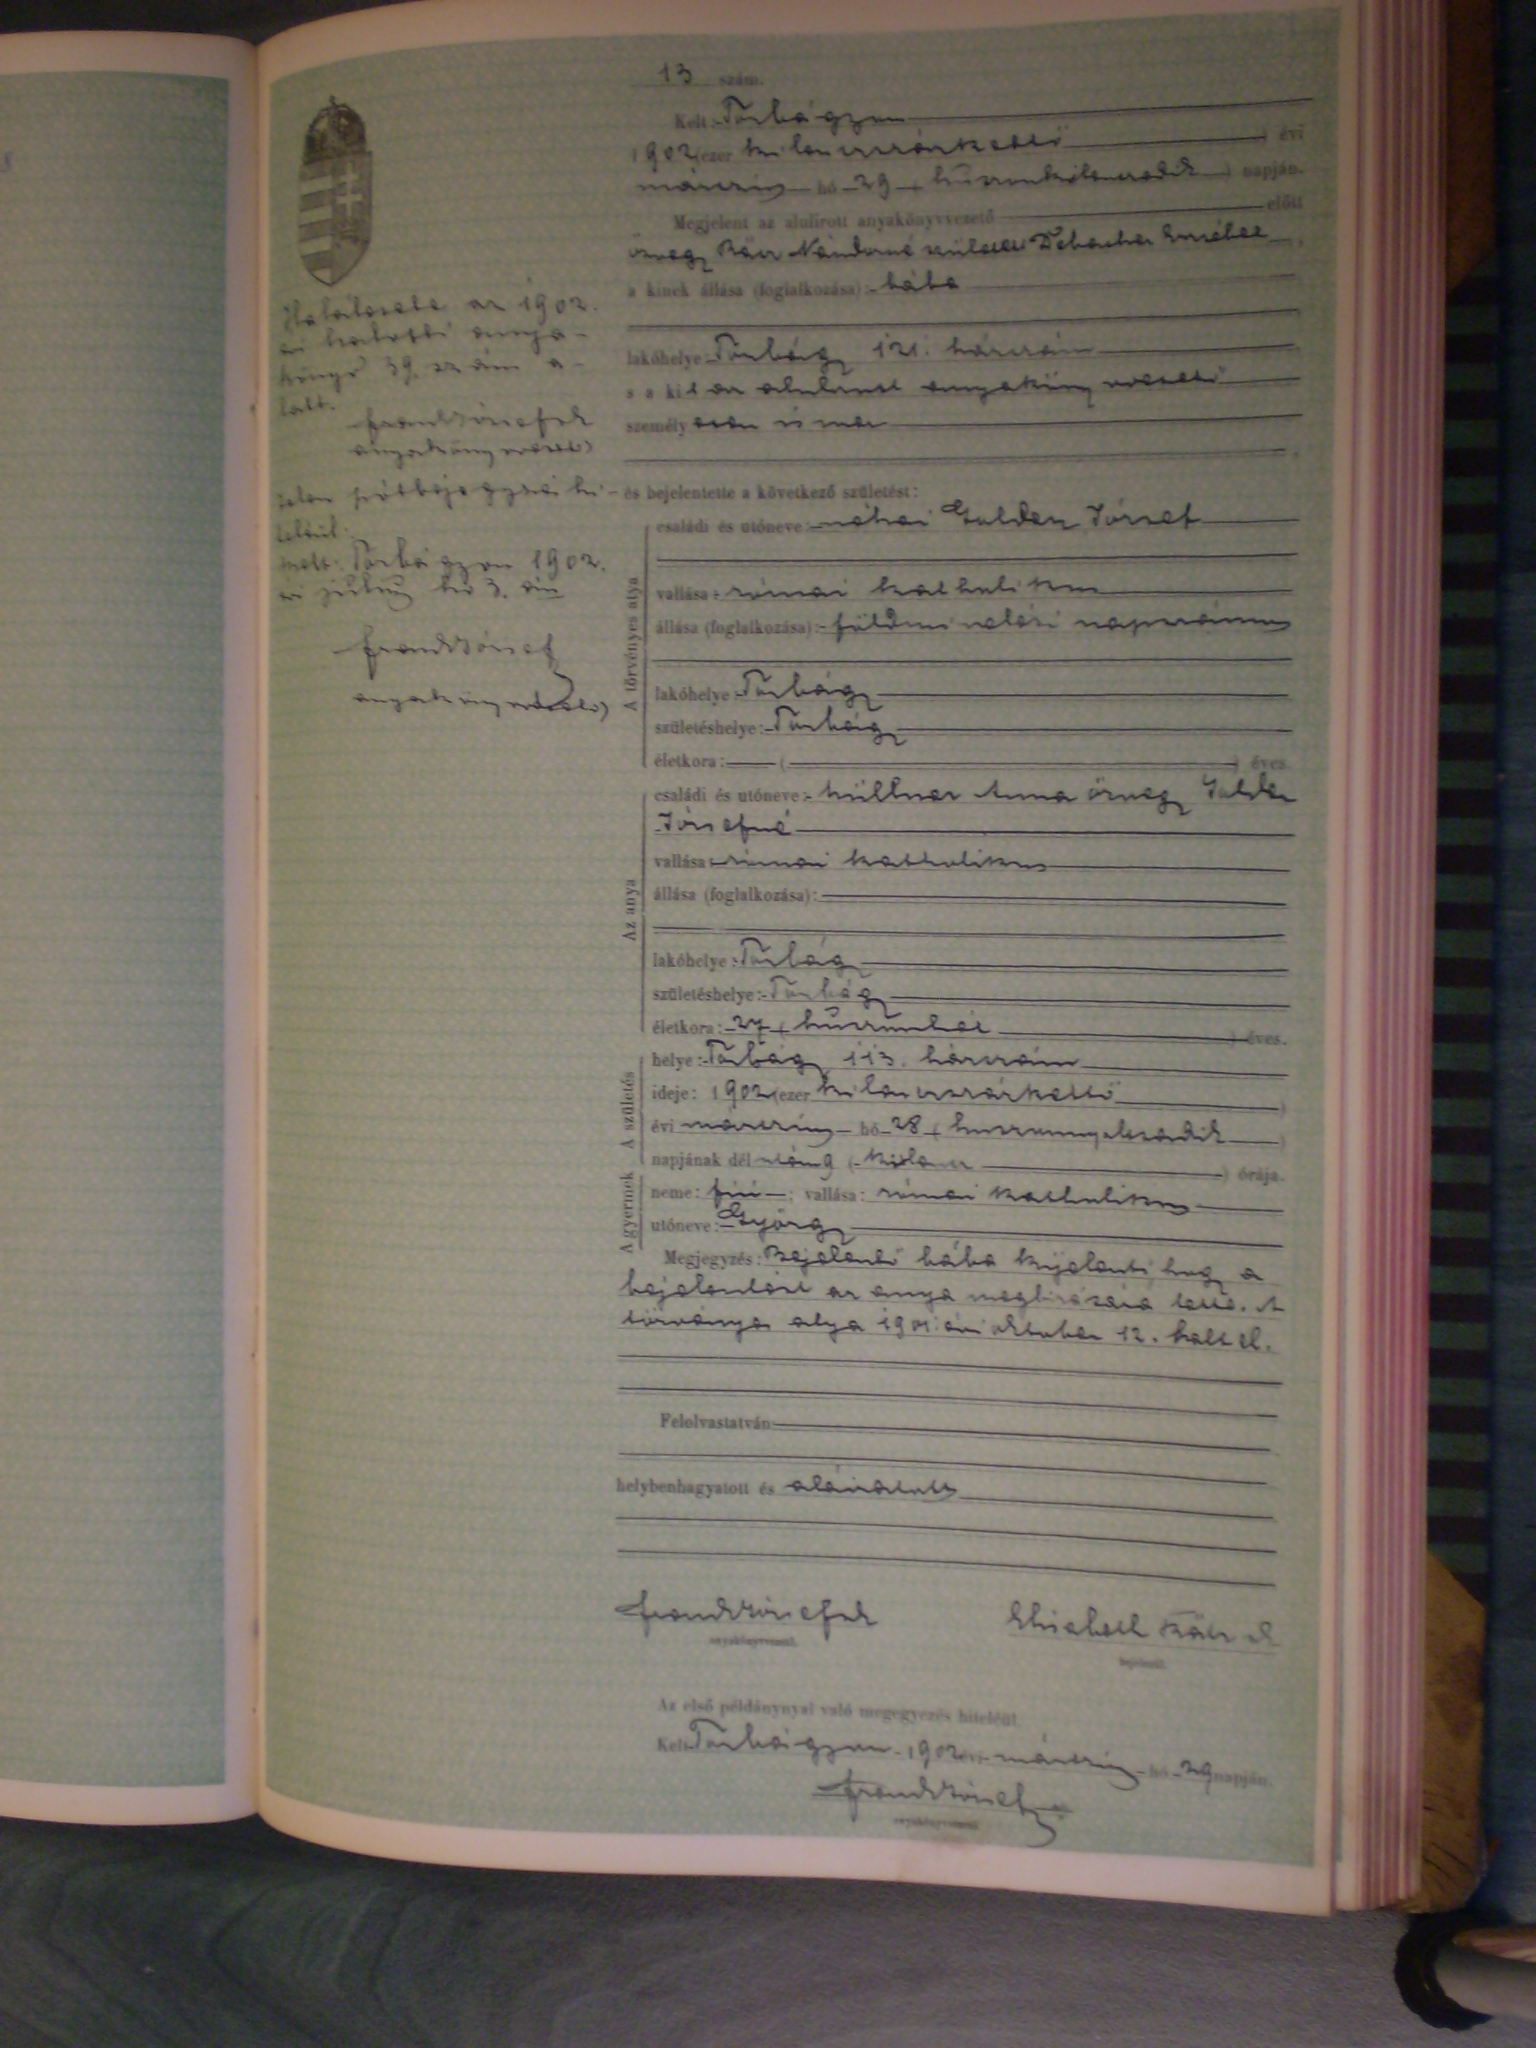 13 szám.
Kelt: Törbágyon
1902 (ezer kilenczszázkettő) évi
márczius hó 29 (huszonkilenczedik) napján.
Megjelent az alulirott anyakönyvvezető előtt
özvegy Bäer Nándorné született
a kinek állása (foglalkozása): bába
lakóhelye: Törbágy 121. házszám
s a kit az alulirott anyakönyvvezető
személyesen ismer
és bejelentette a következő születést:
A törvényes atya
családi és utóneve: néhai Gulden József
vallása: római katholikus
állása (foglalkozása): földmivelési napszámos
lakóhelye: Törbágy
születéshelye: Törbágy
életkora: ( ) éves.
Az anya
családi és utóneve: Müllner Anna özvegy Gulden
Józsefné
vallása: római katholikus
állása (foglalkozása):
lakóhelye: Törbágy
születéshelye: Törbágy
életkora: 27 (huszonhét) éves.
A születés
helye: Törbágy 113. házszám
ideje: 1902 (ezer kilenczszázkettő)
évi márczius hó 28 (huszonnyolczadik)
napjának dél után 9 (kilencz) órája.
A gyermek
neme: fiú; vallása: római katholikus
utóneve: György
Megjegyzés: Bejelentő bába kijelenti, hogy a
bejelentést az anya megbizásából tette. A
törvényes atya 1901. évi október 12. halt el.
Felolvastatván
helybenhagyatott és aláiratott
anyakönyvvezető.
Elisabeth Bäer
bejelentő.
Az első példánynyal való megegyezés hiteléül.
Kelt Törbágyon 1902 évi márczius hó 29 napján.
anyakönyvvezető.
Halálesete az 1902.
évi halotti anya-
könyv 39. szám a-
latt.
anyakönyvvezető
ezen pótbejegyzés hi-
teléül.
Kelt: Törbágyon 1902.
évi július hó 3. án
anyakönyvvezető